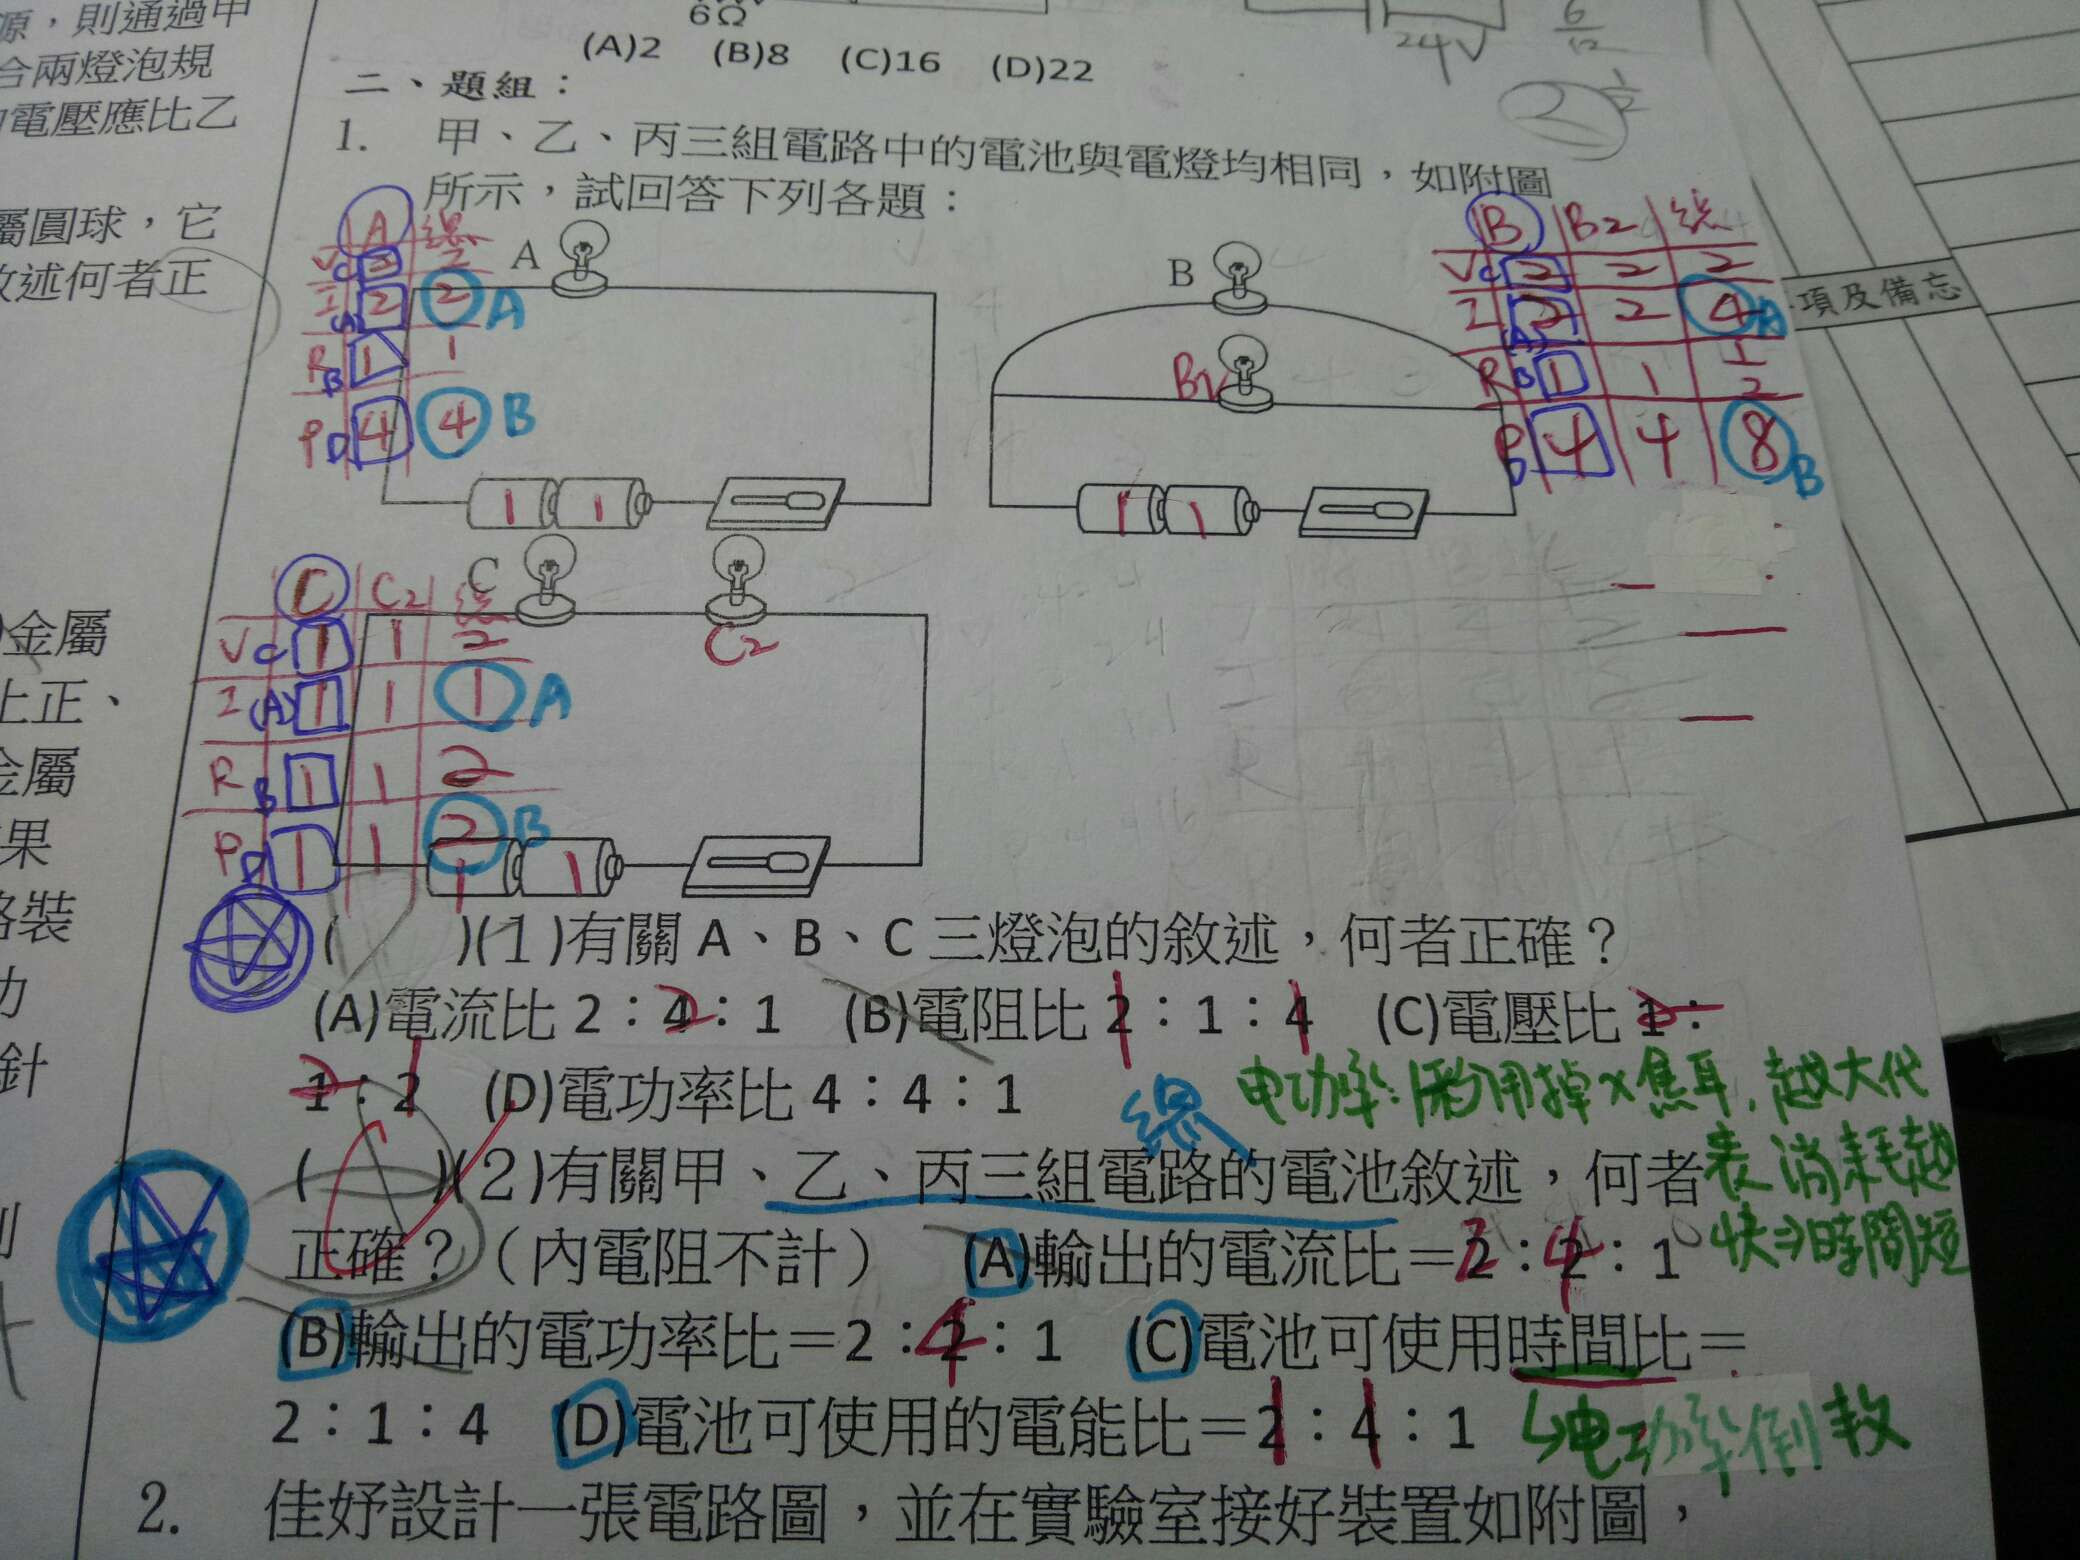 源，則通過甲
合兩燈泡規
電壓應比乙
屬圓球，它
敘述何者正
金屬
上正、
金屬
果
路裝
功
針
6Ω
24V
6
12
(A)2 (B)8 (C)16 (D)22
2 1/2
二、題組：
1. 甲、乙、丙三組電路中的電池與電燈均相同，如附圖
所示，試回答下列各題：
項及備忘
A 總
V C 2 2
I (A) 2 2 A
R B 1 1
P D 4 4 B
A
1 1
B
B2
1 1
B B2 總
V C 2 2 2
I (A) 2 2 4 A
R B 1 1 1/2
P D 4 4 8 B
C C2 總
V C 1 1 2
I (A) 1 1 1 A
R B 1 1 2
P D 1 1 2 B
C
C2
1 1
( )(1)有關 A、B、C 三燈泡的敘述，何者正確？
(A)電流比 2：4：1 (B)電阻比 2：1：4 (C)電壓比 1：
1：2 (D)電功率比 4：4：1
电功率: 所用掉 焦耳, 越大代
表消耗越
快⇒時間短
總
( )(2)有關甲、乙、丙三組電路的電池敘述，何者
正確？（內電阻不計） (A)輸出的電流比＝2：2：1
(B)輸出的電功率比＝2：2：1 (C)電池可使用時間比＝
2：1：4 (D)電池可使用的電能比＝2：4：1
↳电功率倒教
2. 佳妤設計一張電路圖，並在實驗室接好裝置如附圖，